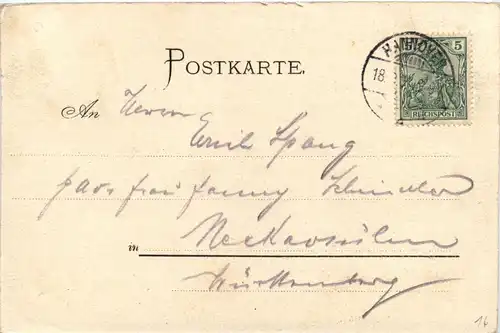 POSTKARTE.
HANNOVER
18.
5
REICHSPOST
An Herrn
Emil Spang
par. frau fanny Schindler
in Neckarsulm
Württemberg
16